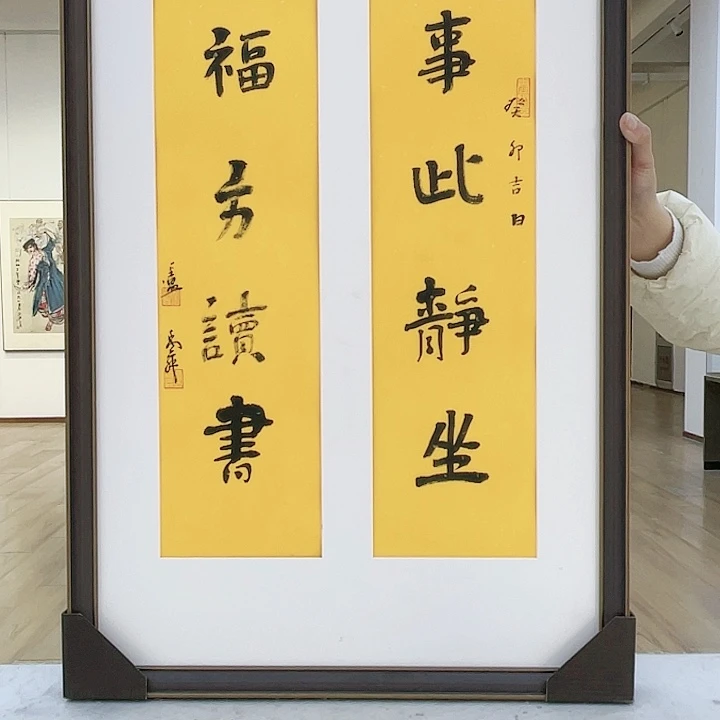 事此靜坐
癸卯吉日
福方讀書